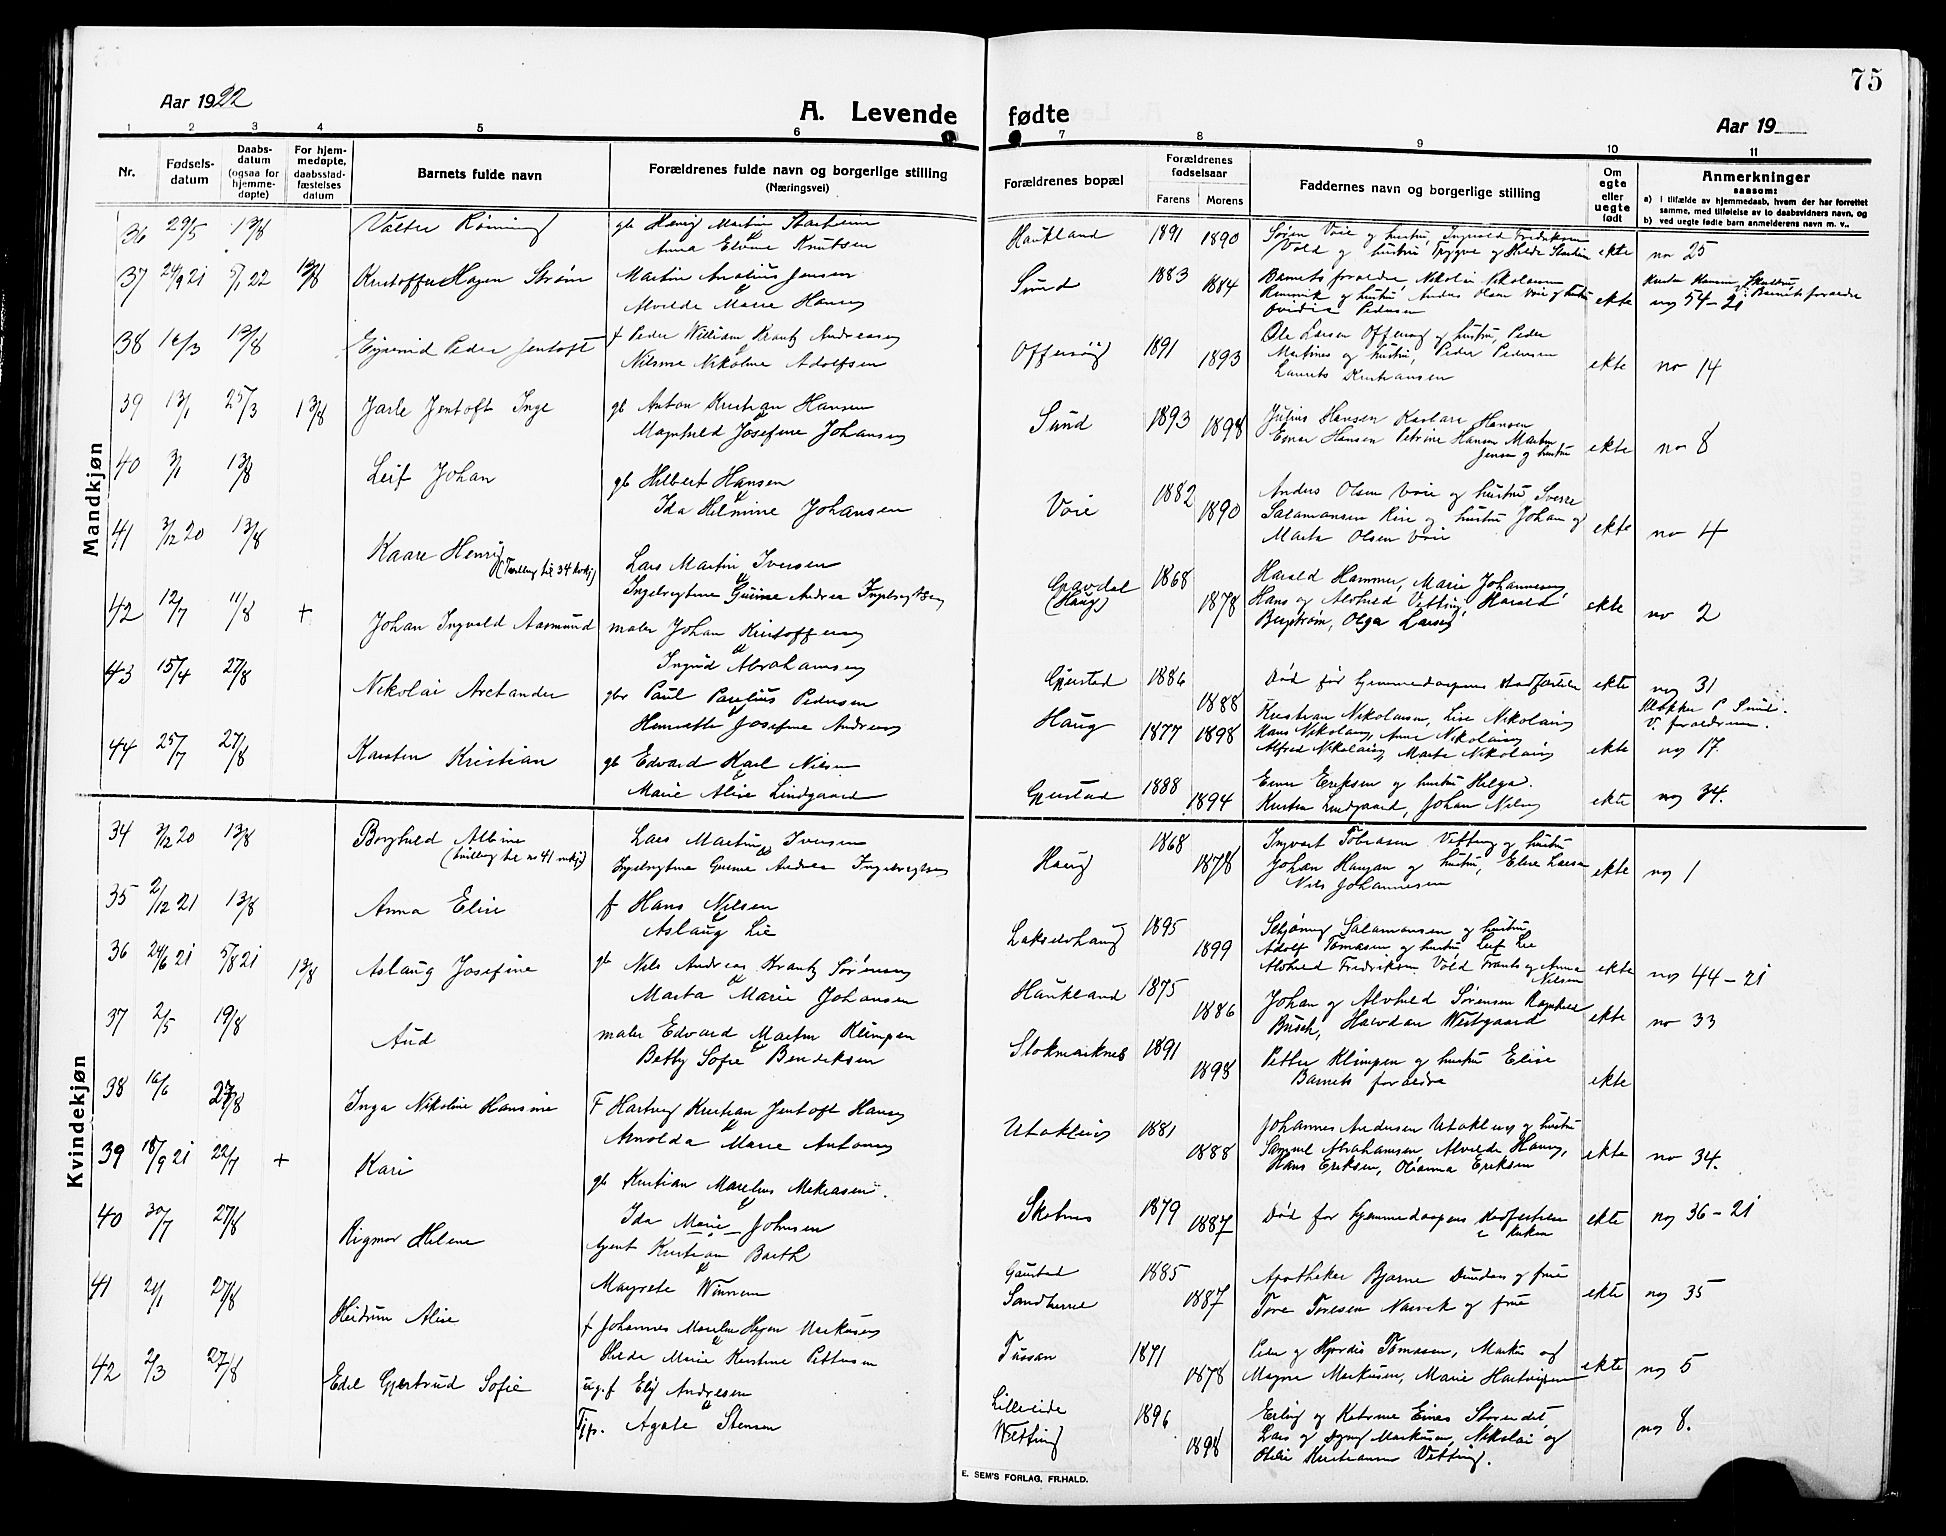 75
Aar 1922
A. Levende fødte
Aar 19
1 2 3 4 5 6 7 8 9 10 11
Nr.
Fødsels-
datum
Daabs-
datum
(ogsaa for
hjemme-
døpte)
For hjem-
medøpte,
daabsstad-
fæstelses
datum
Barnets fulde navn
Forældrenes fulde navn og borgerlige stilling
(Næringsvei)
Forældrenes bopæl
Forældrenes
fødselsaar
Farens Morens
Faddernes navn og borgerlige stilling
Om
egte
eller
uegte
født
Anmerkninger
saasom:
a) i tilfælde av hjemmedaab, hvem der har forrettet
samme, med tilføielse av to daabsvidners navn, og
b) ved uegte fødte barn anmelderens navn m. v..
Mandkjøn
36 29/5 13/8 Valter Rönning gb Henrig Martin Starheim
Anna Elvine Knutsen
Haukland 1891 1890 Sören Voie og hustru, Ingvald Fredriksen
Vold og hustru Trygve og Hilde
ekte no 25
37 24/9 21 5/1 22 13/8 Kristoffer Hagen Ström Martin Analius Jensen
Alvilde Marie Hansen
Sund 1883 1884 Barnets foraldre, Nikolai Nikolaisen
og hustru Anders Olsen Voie og hustru
Pedersen
ekte no 54-21
Barnets foraldre
38 16/3 13/8 Eyvind Peder Jentoft f Peder William Krantz Andreassen
Nilsine Nikoline Adolfsen
Offersöy 1891 1893 Ole Larsen Offersöy og hustru, Peder
Martines og hustru, Peder Pedersen
Laurits Kristiansen
ekte no 14
39 13/1 25/3 13/8 Jarle Jentoft Inge gb Anton Kristian Hansen
Magnhild Josefine Johansen
Sund 1893 1898 Julius Hansen Hansen
Einar Hansen Petrine Hansen Martin
Jensen og hustru
ekte no 8
40 3/1 13/8 Leif Johan gb Hilbert Hansen
Ida Helmine Johansen
Voie 1882 1890 Anders Olsen Voie og hustru Sverre
Salamonsen Rise og hustru Johan og
Marta Olsen Voie
ekte no 4
41 3/12 20 13/8 Kaare Henrij
(Tvilling til 34 kvkj)
Lars Martin Iversen
Ingebrigtine Gurine Andrea Ingebrigtsen
Gravdal
(Haug)
1868 1878 Harald Hammer, Marie Johannesen,
Hans og Alvhild Vetting, Harald
Bergström, Olga Larsen
ekte no 2
42 12/7 11/8 + Johan Ingvald Aasmund maler Johan Kristoffersen
Ingrid Abrahamsen
Gjerstad 1886 1888 Död för hjemmedaapens stadfestelse ekte no 31
43 15/4 27/8 Nikolai Arctander gbr Paul Paulius Pedersen
Henriette Josefine Andreassen
Haug 1877 1898 Kristian Nikolaisen, Lise Nikolaisen
Hans Nikolaisen, Anne Nikolaisen
Alfred Nikolaisen, Marta Nikolaisen
ekte no 17
44 25/7 27/8 Karsten Kristian gb Edvard Karl Nilsen
Marie Alise Lindgaard
Gjerstad 1888 1894 Einar Eriksen og hustru Helga.
Kirsten Lindgaard, Johan Nilsen
ekte no 34.
Kvindekjøn
34 3/12 20 13/8 Borghild Albine
(tvilling til no 41 mkj)
Lars Martin Iversen
Ingebrigtine Gurine Andrea Ingebrigtsen
Haug 1868 1878 Ingvart Tobiasen Vetting og hustru
Johan Haugan og hustru, Elise Larsen
Nils Johannesen
ekte no 1
35 2/12 21 13/8 Anna Elise f Hans Nilsen
Aslaug Lie
1895 1899 Schjöning Salamonsen og hustru
Adolf Tomasen og hustru Leif Lie
Alvhild Fredriksen Vold Frants og Anna
Nilsen
ekte no 44-21
36 24/6 21 5/8 21 13/8 Aslaug Josefine gb Nils Andreas Krantz Sörensen
Marta Marie Johansen
Haukland 1875 1886 Johan og Alvhild Sörensen Ragnhild
Busch, Halvdan Westgaard
ekte no 33
37 2/5 19/8 Aud maler Edvard Martin Klimpen
Betty Sofie Bendiksen
Stokmarknes 1891 1898 Petter Klimpen og hustru Elise
Barnets foraldre
ekte
38 16/6 27/8 Inga Nikoline Hansine F Hartvig Kristian Jentoft Hansen
Arnolda Marie Antonsen
Utakleiv 1881 1888 Johannes Andersen Utakleiv og hustru
Samuel Abrahamsen, Alvilde Hansen,
Hans Eriksen, Olianna Eriksen
ekte no 34.
39 18/9 21 22/7 + Kari gb Kristian Marelius Mikiasen.
Ida Marie Johnsen
Skotnes 1879 1887 Död for hjemmedaapens stadfestelse
i kirken
ekte no 36-21
40 30/7 27/8 Rigmor Helene Agent Kristian Barth
Magrete Winnem
Gaustad
Sandherne
1885 1887 Apotheker Bjarne Dundas og frue
Tore Toresen Narvik og frue
ekte no 35
41 21/1 27/8 Heidrun Alise f Johannes Marelius Hagen Markusen
Hilda Marie Kristine Pettersen
Tussan 1871 1878 Peder og Hjördis Tomasen, Markus og
Magna Markusen, Marie Hartvigsen
ekte no 5
42 2/3 27/8 Edel Gjertrud Sofie ug.f Elij Andresen
Tjp. Agate Stensen
Lilleeide
Vetting
1896 1898 Erling og Katrine Eines Storeidet,
Lars og Dagny Markusen, Nikolai og
Otilie Kristiansen Vetting.
no 8.
E. SEM'S FORLAG, FR.HALD.